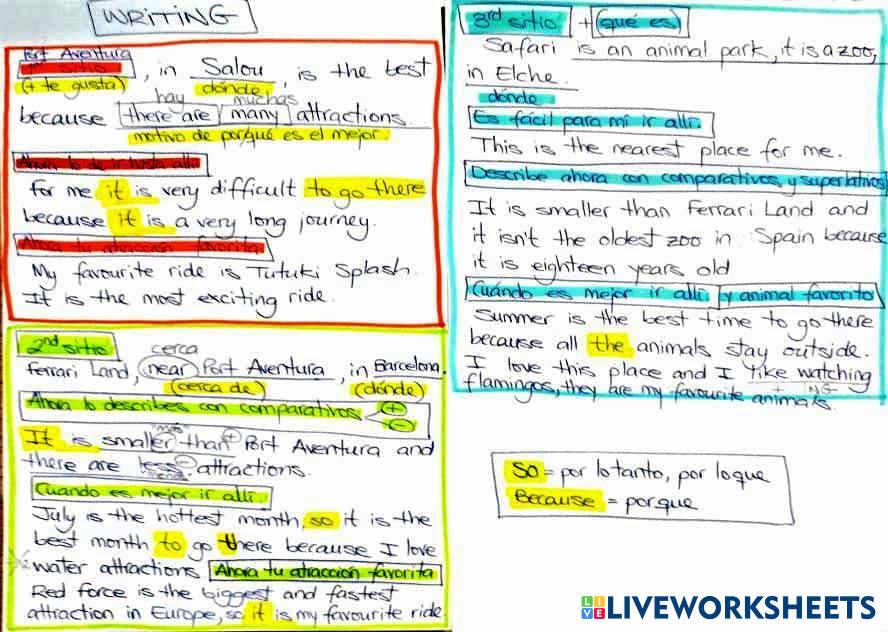 WRITING
Port Aventura
1er sitio, in Salou, is the best
(+ te gusta) dónde
hay muchas
because there are many attractions.
motivo de porqué es el mejor.
Ahora lo de ir hasta allí
for me it is very difficult to go there
because it is a very long journey.
Ahora tu atracción favorita
My favourite ride is Tutuki Splash.
It is the most exciting ride.
2nd sitio cerca
Ferrari Land, near Port Aventura, in Barcelona.
(cerca de) (dónde)
Ahora lo describes con comparativos + -
It is smaller than Port Aventura and
there are less attractions.
Cuando es mejor ir allí.
July is the hottest month, so it is the
best month to go there because I love
water attractions Ahora tu atracción favorita
Red force is the biggest and fastest
attraction in Europe, so it is my favourite ride
3rd sitio + (qué es)
Safari is an animal park, it is a zoo,
in Elche.
dónde
Es fácil para mí ir allí.
This is the nearest place for me.
Describe ahora con comparativos y superlativos
It is smaller than Ferrari Land and
it isn't the oldest zoo in Spain because
it is eighteen years old
Cuándo es mejor ir allí y animal favorito
Summer is the best time to go there
because all the animals stay outside.
I love this place and I like watching
+ ING
flamingos, they are my favourite animals.
So = por lo tanto, por lo que
Because = porque
LIVE LIVEWORKSHEETS